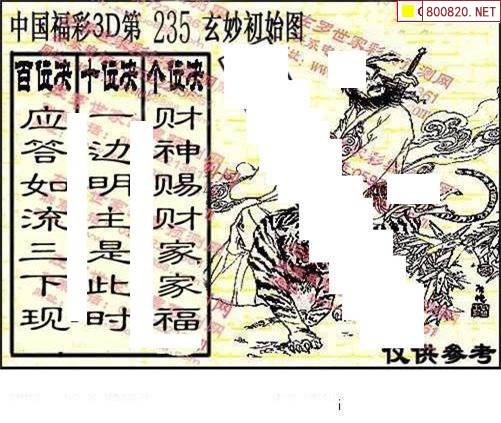 800820.NET
中国福彩3D第 235 玄妙初始图
百位决 十位决 个位决
应答如流三下现
一边明主是此时
财神赐财家家福
仅供参考
i